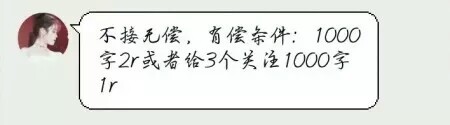 不接无偿，有偿条件：1000
字2r或者给3个关注1000字
1r